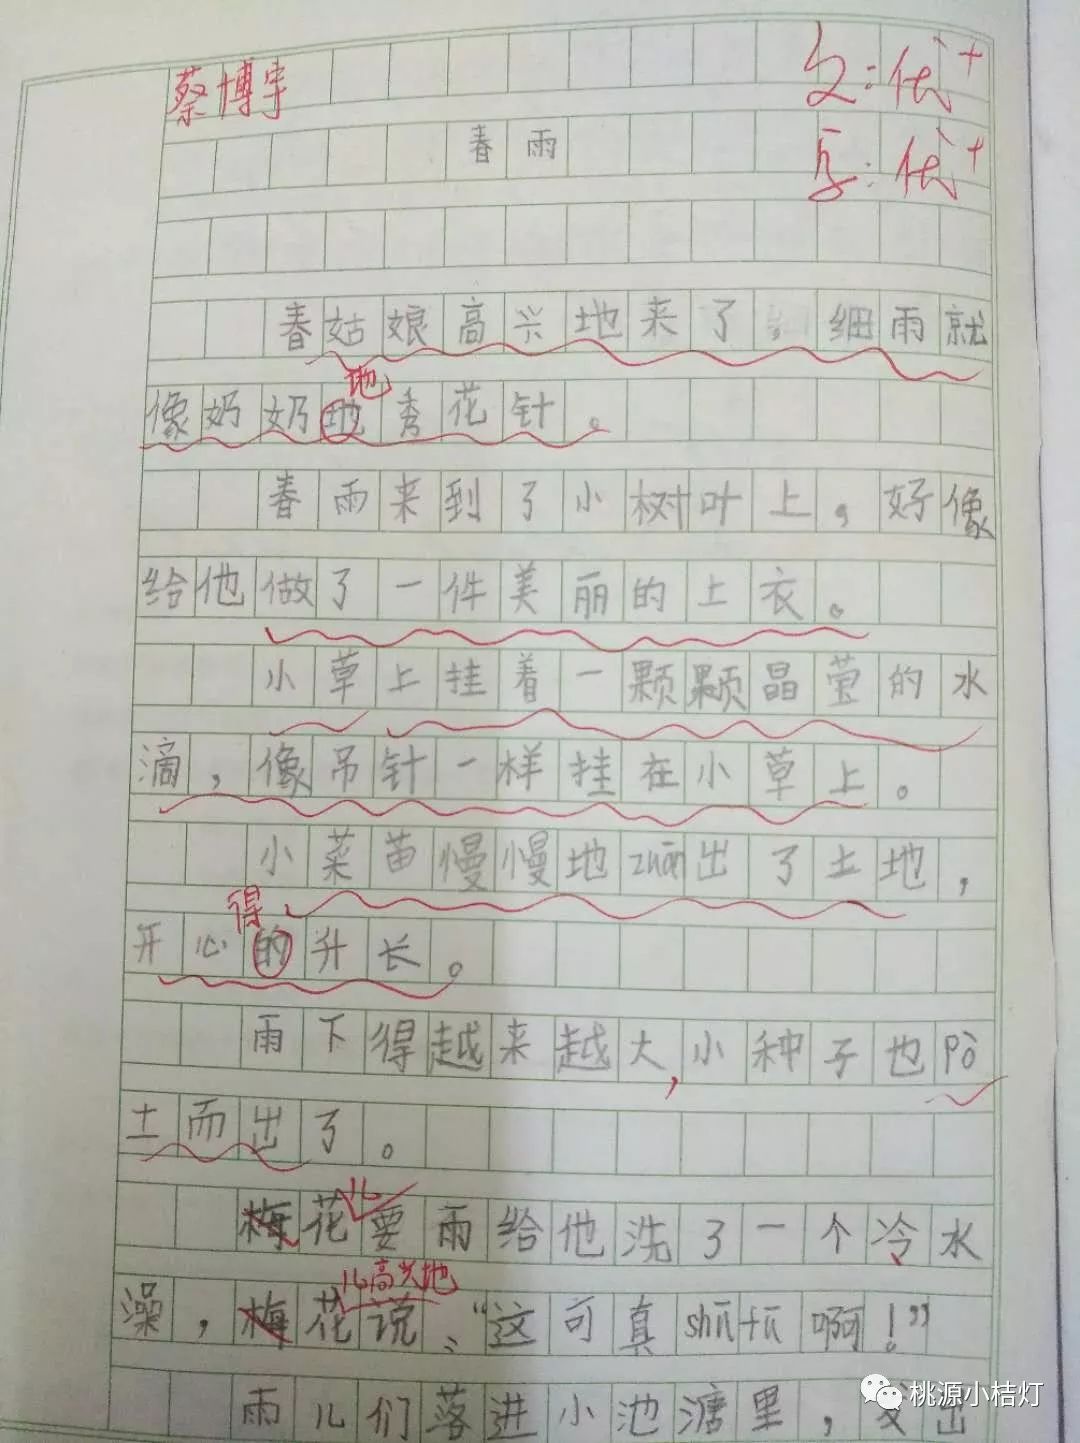 蔡博宇
文:优+
字:优+
春雨
春姑娘高兴地来了,细雨就
地
像奶奶地秀花针。
春雨来到了小树叶上,好像
给他做了一件美丽的上衣。
小草上挂着一颗颗晶莹的水
滴,像吊针一样挂在小草上。
小菜苗慢慢地zuān出了土地,
得
开心的升长。
雨下得越来越大,小种子也pò
土而出了。
儿
梅花要雨给他洗了一个冷水
儿高兴地
澡,梅花说:“这可真shūfū啊!”
雨儿们落进小池溏里,发出
桃源小桔灯